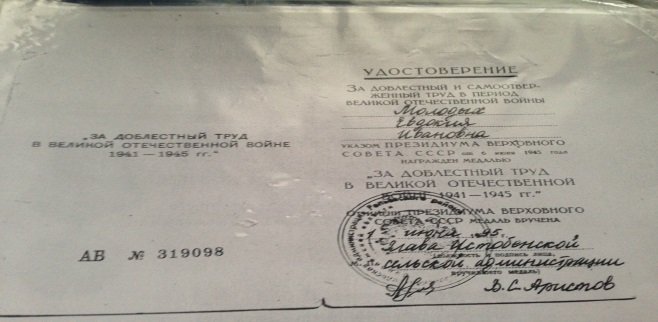 „ЗА ДОБЛЕСТНЫЙ ТРУД
В ВЕЛИКОЙ ОТЕЧЕСТВЕННОЙ ВОЙНЕ
1941—1945 гг."
АВ № 319098
УДОСТОВЕРЕНИЕ
ЗА ДОБЛЕСТНЫЙ И САМООТВЕР-
ЖЕННЫЙ ТРУД В ПЕРИОД
ВЕЛИКОЙ ОТЕЧЕСТВЕННОЙ ВОЙНЫ
Молодых
Евдокия
Ивановна
УКАЗОМ ПРЕЗИДИУМА ВЕРХОВНОГО
СОВЕТА СССР от 6 июня 1945 года
НАГРАЖДЕН МЕДАЛЬЮ
„ЗА ДОБЛЕСТНЫЙ ТРУД
В ВЕЛИКОЙ ОТЕЧЕСТВЕННОЙ
1941—1945 гг."
ПРЕЗИДИУМА ВЕРХОВНОГО
СОВЕТА СССР МЕДАЛЬ ВРУЧЕНА
июля 95
Глава Истобенской
и подпись лица,
сельской администрации
вручившего медаль)
В.С. Аристов